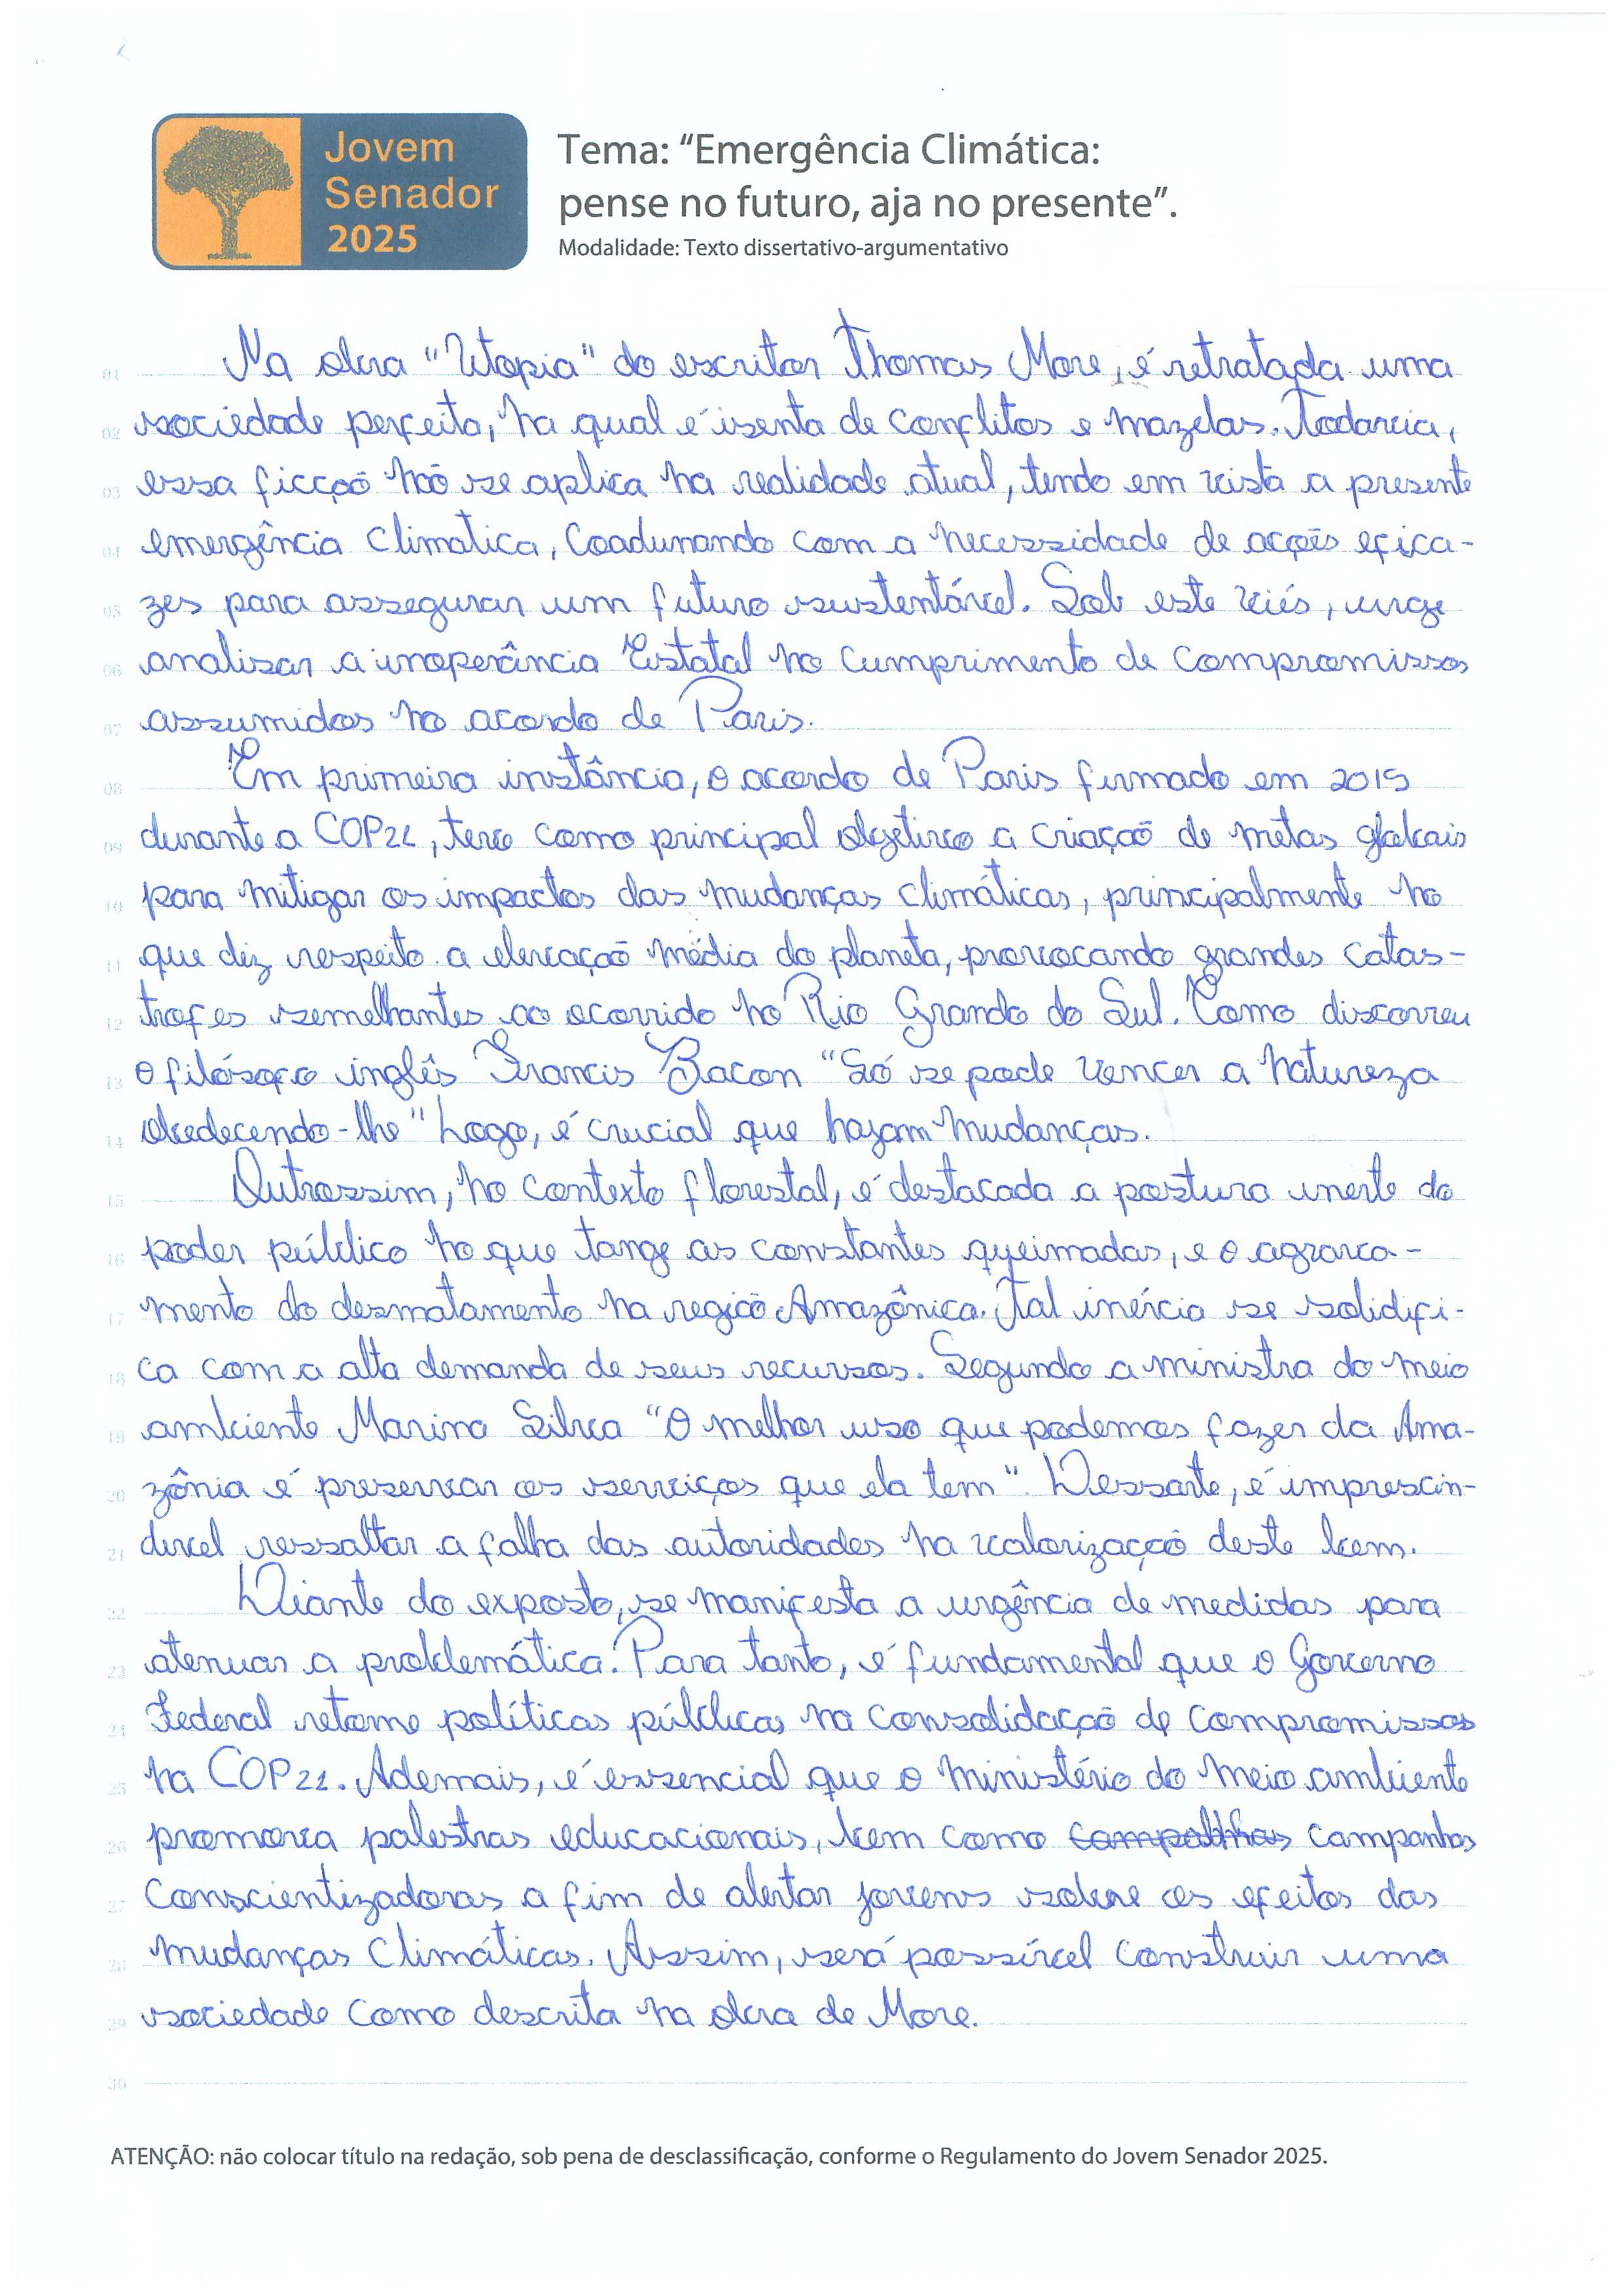 Jovem
Senador
2025
Tema: “Emergência Climática:
pense no futuro, aja no presente”.
Modalidade: Texto dissertativo-argumentativo
01 Na obra "Utopia" do escritor Thomas More, é retratada uma
02 sociedade perfeita, na qual é isenta de conflitos e mazelas. Todavia,
03 essa ficção não se aplica na realidade atual, tendo em vista a presente
04 emergência climatica, coadunando com a necessidade de acções efica-
05 zes para assegurar um futuro sustentável. Sob este viés, urge
06 analisar a inoperância Estatal no cumprimento de compromissos
07 assumidos no acordo de Paris.
08 Em primeira instância, o acordo de Paris firmado em 2015
09 durante a COP21, teve como principal objetivo a criação de metas globais
10 para mitigar os impactos das mudanças climáticas, principalmente no
11 que diz respeito a elevação média do planeta, provocando grandes catas-
12 trofes semelhantes ao ocorrido no Rio Grande do Sul. Como discorreu
13 o filósofo inglês Francis Bacon "Só se pode vencer a natureza
14 obedecendo-lhe" Logo, é crucial que hajam mudanças.
15 Outrossim, no contexto florestal, é destacada a postura inerte do
16 poder público no que tange as constantes queimadas, e o agrava-
17 mento do desmatamento na região Amazônica. Tal inércia se solidifi-
18 ca com a alta demanda de seus recursos. Segundo a ministra do meio
19 ambiente Marina Silva "O melhor uso que podemos fazer da Ama-
20 zônia é preservar os serviços que ela tem". Dessarte, é imprescin-
21 divel ressaltar a falha das autoridades na valorização deste bem.
22 Diante do exposto, se manifesta a urgência de medidas para
23 atenuar a problemática. Para tanto, é fundamental que o Governo
24 Federal retome políticas públicas na consolidação de compromissos
25 na COP21. Ademais, é essencial que o ministério do meio ambiente
26 promova palestras educacionais, bem como campanhas
27 conscientizadoras a fim de alertar jovens sobre os efeitos das
28 mudanças climáticas. Assim, será possível construir uma
29 sociedade como descrita na obra de More.
30
ATENÇÃO: não colocar título na redação, sob pena de desclassificação, conforme o Regulamento do Jovem Senador 2025.